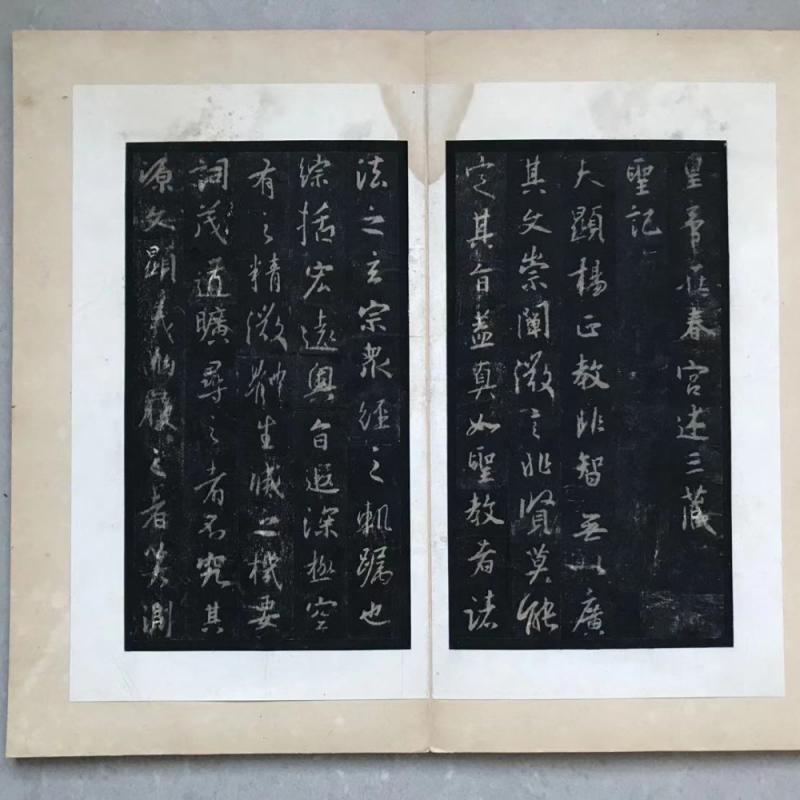 皇帝在春宮述三藏
聖記
大顯揚正教非智無以廣
其文崇闡微言非賢莫能
定其旨蓋真如聖教者諸
法之玄宗眾經之軌躅也
綜括宏遠奧旨遐深極空
有之精微體生滅之機要
詞茂道曠尋之者不究其
源文顯義幽履之者莫測